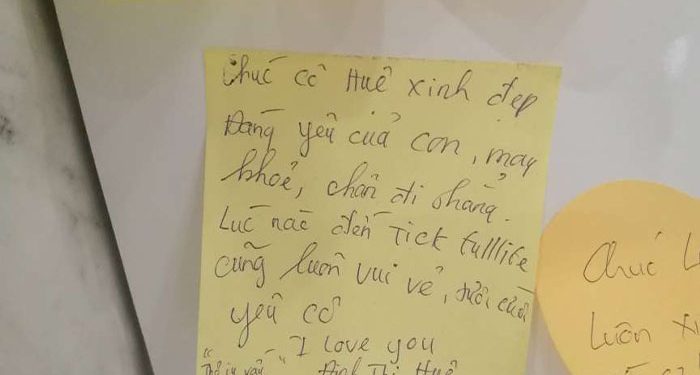 Chúc cô Huê xinh đẹp
Đáng yêu của con, may
khoẻ, chân đi
Lúc nào đến Tick fulllife
cũng luôn vui vẻ, tươi cười
yêu cô
I love you
Đinh Thị Huê
Chúc
luôn